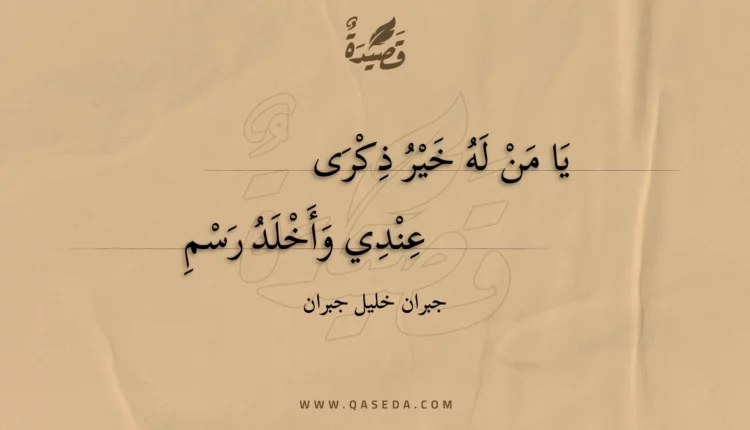 قَصِيْدَةٌ
يَا مَنْ لَهُ خَيْرُ ذِكْرَى
عِنْدِي وَأَخْلَدُ رَسْمِ
جبران خليل جبران
WWW.QASEDA.COM